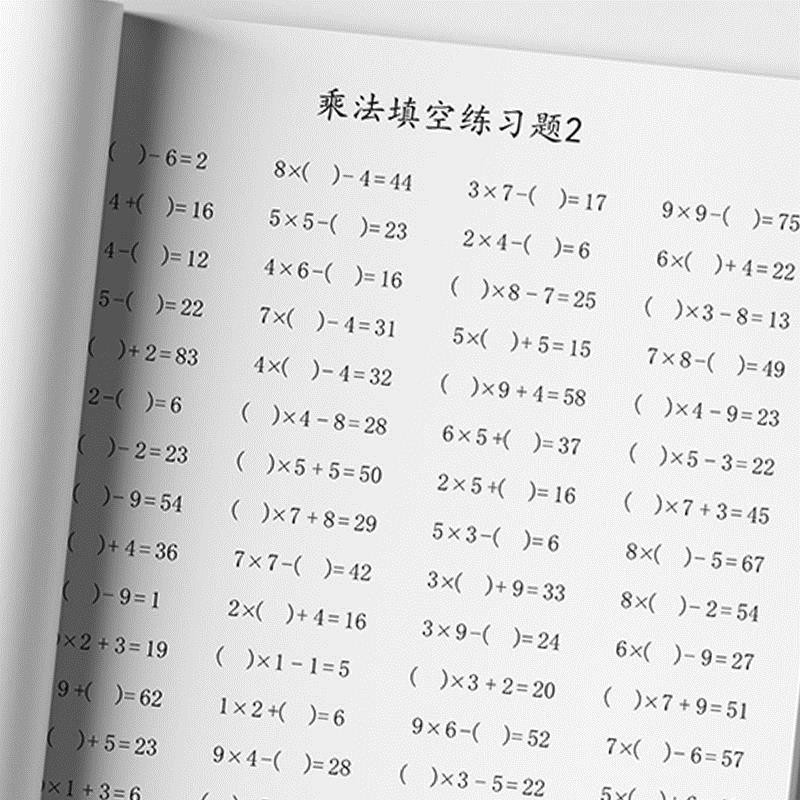 乘法填空练习题2
( )-6=2 8×( )-4=44 3×7-( )=17 9×9-( )=75
4+( )=16 5×5-( )=23 2×4-( )=6 6×( )+4=22
4-( )=12 4×6-( )=16 ( )×8-7=25 ( )×3-8=13
5-( )=22 7×( )-4=31 5×( )+5=15 7×8-( )=49
( )+2=83 4×( )-4=32 ( )×9+4=58 ( )×4-9=23
2-( )=6 ( )×4-8=28 6×5+( )=37 ( )×5-3=22
( )-2=23 ( )×5+5=50 2×5+( )=16 ( )×7+3=45
( )-9=54 ( )×7+8=29 5×3-( )=6 8×( )-5=67
( )+4=36 7×7-( )=42 3×( )+9=33 8×( )-2=54
( )-9=1 2×( )+4=16 3×9-( )=24 6×( )-9=27
)×2+3=19 ( )×1-1=5 ( )×3+2=20 ( )×7+9=51
9+( )=62 1×2+( )=6 9×6-( )=52 7×( )-6=57
( )+5=23 9×4-( )=28 ( )×3-5=22 5×( )
)×1+3=6